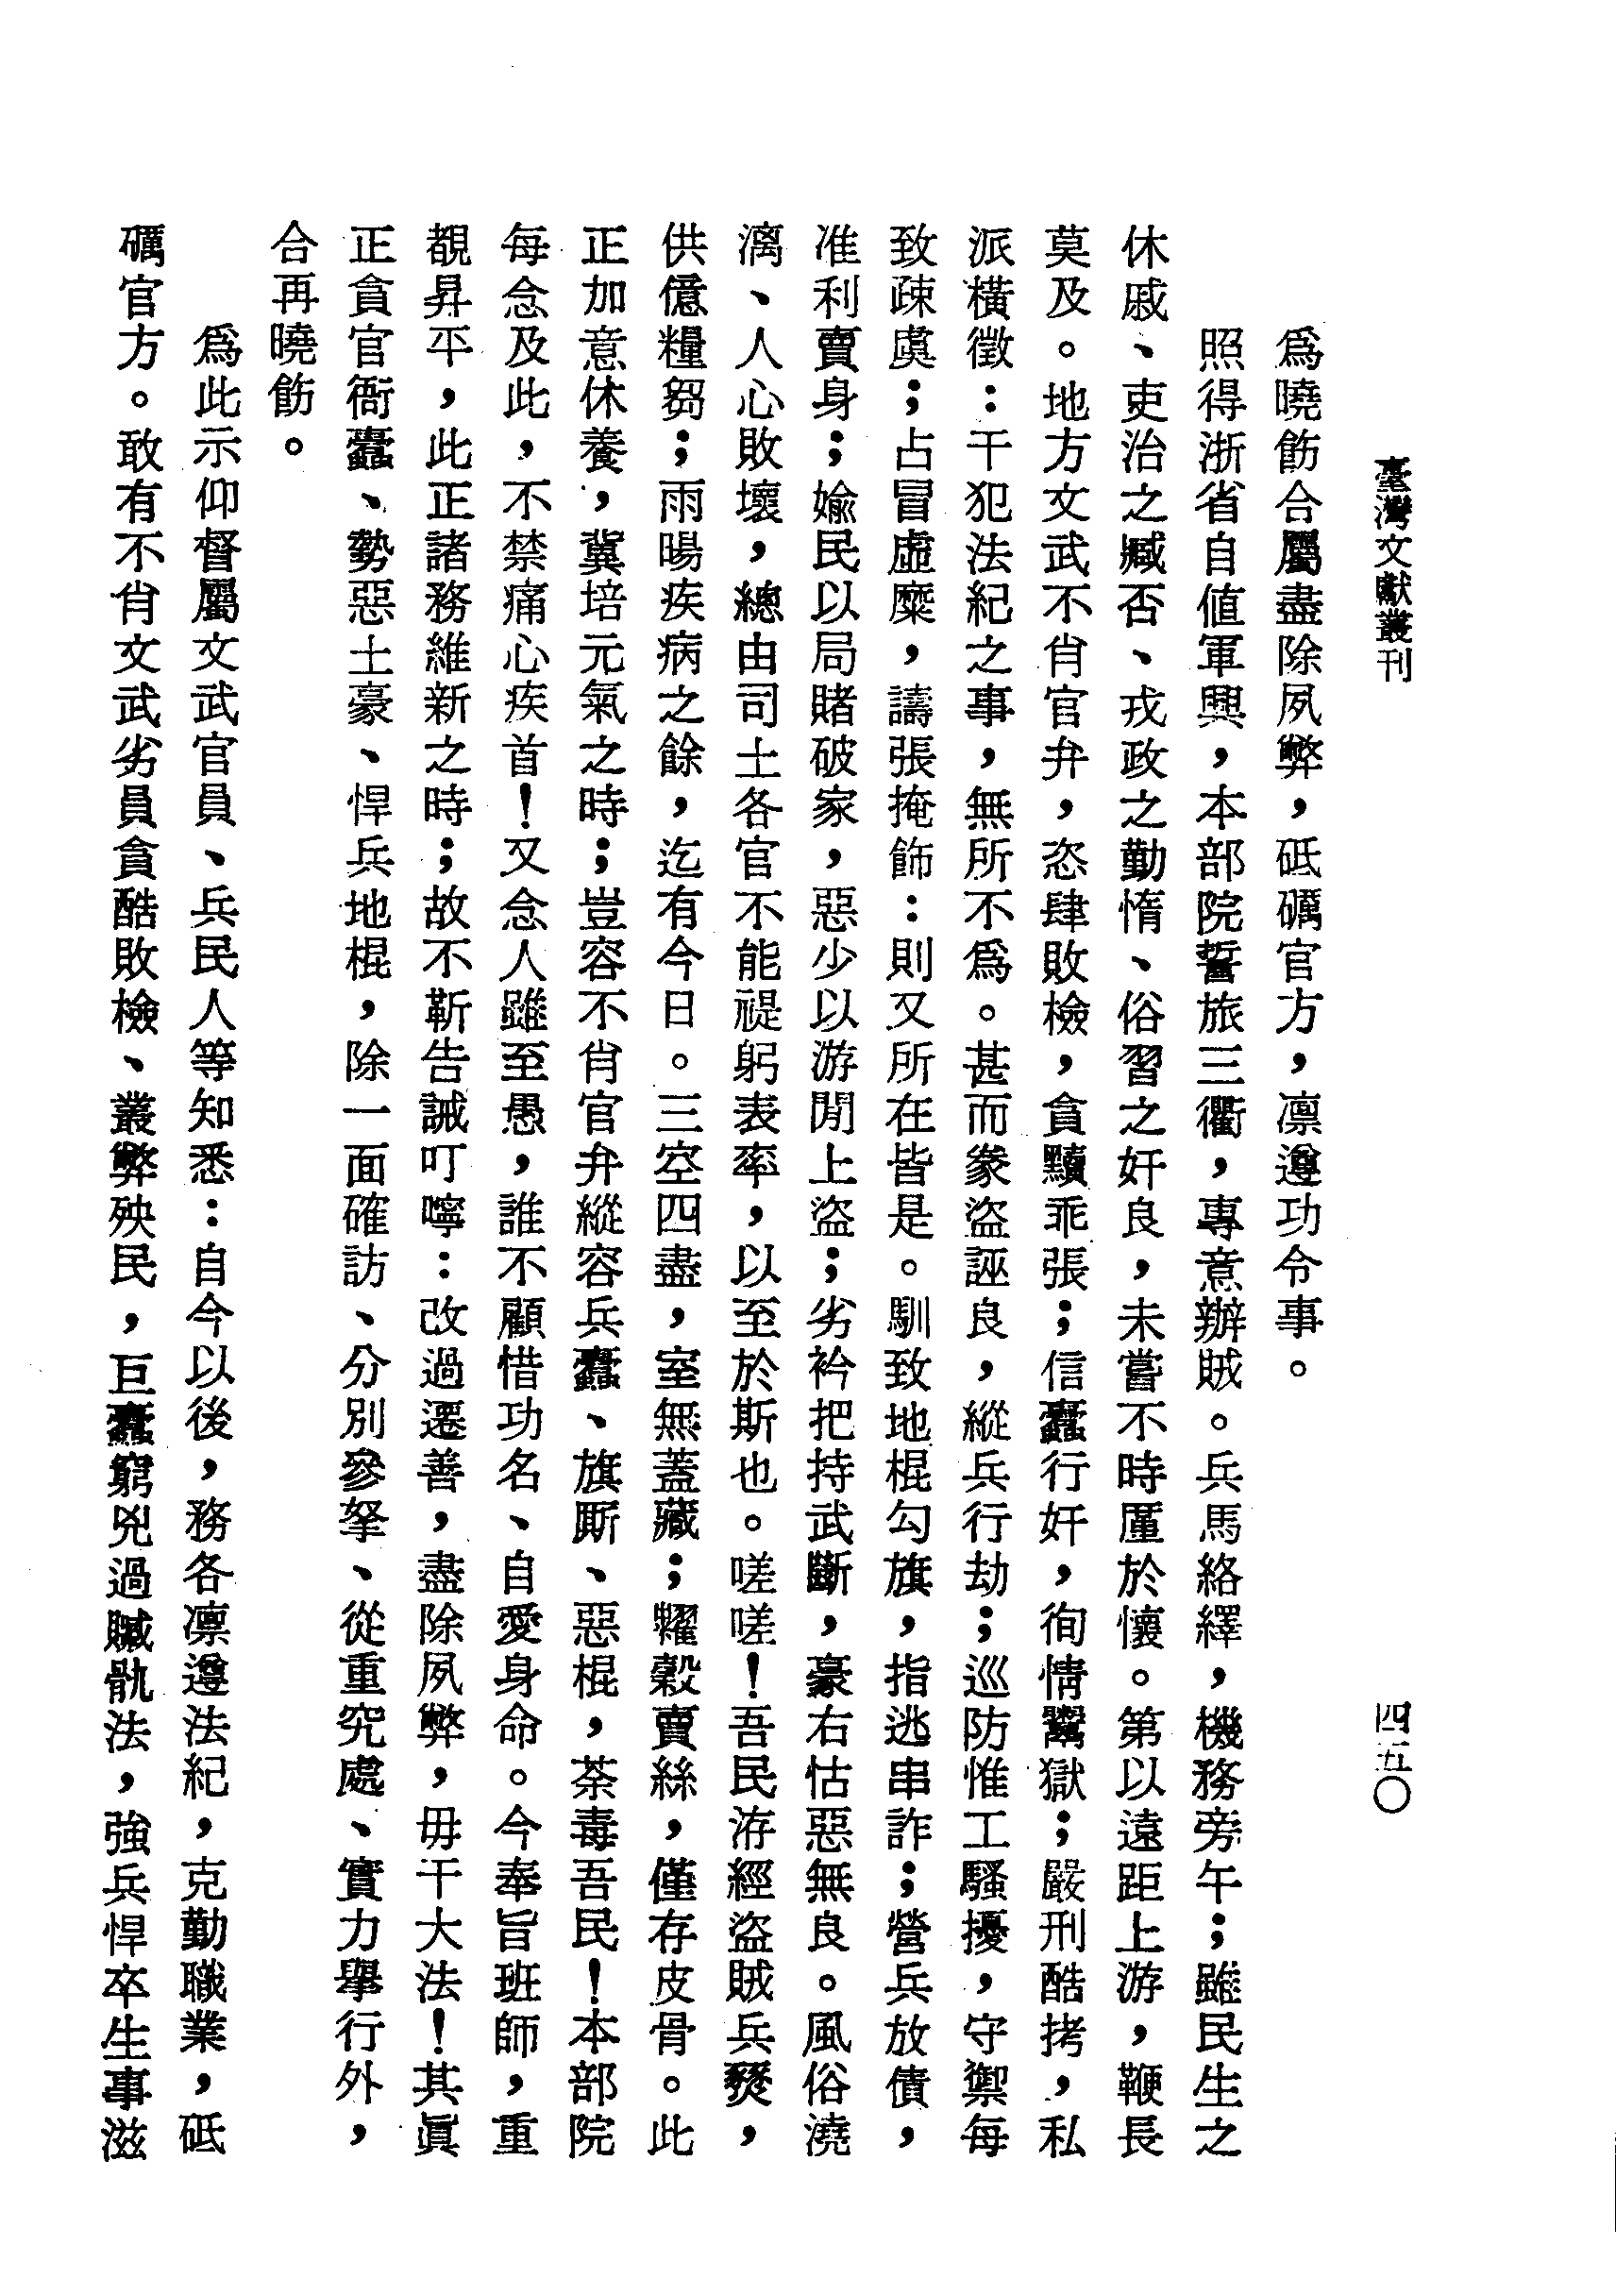 臺灣文獻叢刊
四五〇
爲曉飭合屬盡除夙弊，砥礪官方，凛遵功令事。
照得浙省自值軍興，本部院誓旅三衢，專意辦賊。兵馬絡繹，機務旁午；雖民生之
休戚、吏治之臧否、戎政之勤惰、俗習之奸良，未嘗不時厪於懷。第以遠距上游，鞭長
莫及。地方文武不肖官弁，恣肆敗檢，貪黷乖張；信蠹行奸，徇情鬻獄；嚴刑酷拷，私
派橫徵：干犯法紀之事，無所不爲。甚而豢盜誣良，縱兵行劫；巡防惟工騷擾，守禦每
致疎虞；占冒虛糜，譸張掩飾：則又所在皆是。馴致地棍勾旗，指逃串詐；營兵放債，
准利賣身；婾民以局賭破家，惡少以游閒上盜；劣衿把持武斷，豪右怙惡無良。風俗澆
漓、人心敗壞，總由司土各官不能禔躬表率，以至於斯也。嗟嗟！吾民洊經盜賊兵燹，
供億糧芻；雨暘疾病之餘，迄有今日。三空四盡，室無蓋藏；糶穀賣絲，僅存皮骨。此
正加意休養，冀培元氣之時；豈容不肖官弁縱容兵蠹、旗厮、惡棍，荼毒吾民！本部院
每念及此，不禁痛心疾首！又念人雖至愚，誰不顧惜功名、自愛身命。今奉旨班師，重
覩昇平，此正諸務維新之時；故不靳告誡叮嚀：改過遷善，盡除夙弊，毋干大法！其眞
正貪官衙蠹、勢惡土豪、悍兵地棍，除一面確訪、分別參拏、從重究處、實力舉行外，
合再曉飭。
爲此示仰督屬文武官員、兵民人等知悉：自今以後，務各凛遵法紀，克勤職業，砥
礪官方。敢有不肖文武劣員貪酷敗檢、叢弊殃民，巨蠹窮兇過贓骫法，強兵悍卒生事滋